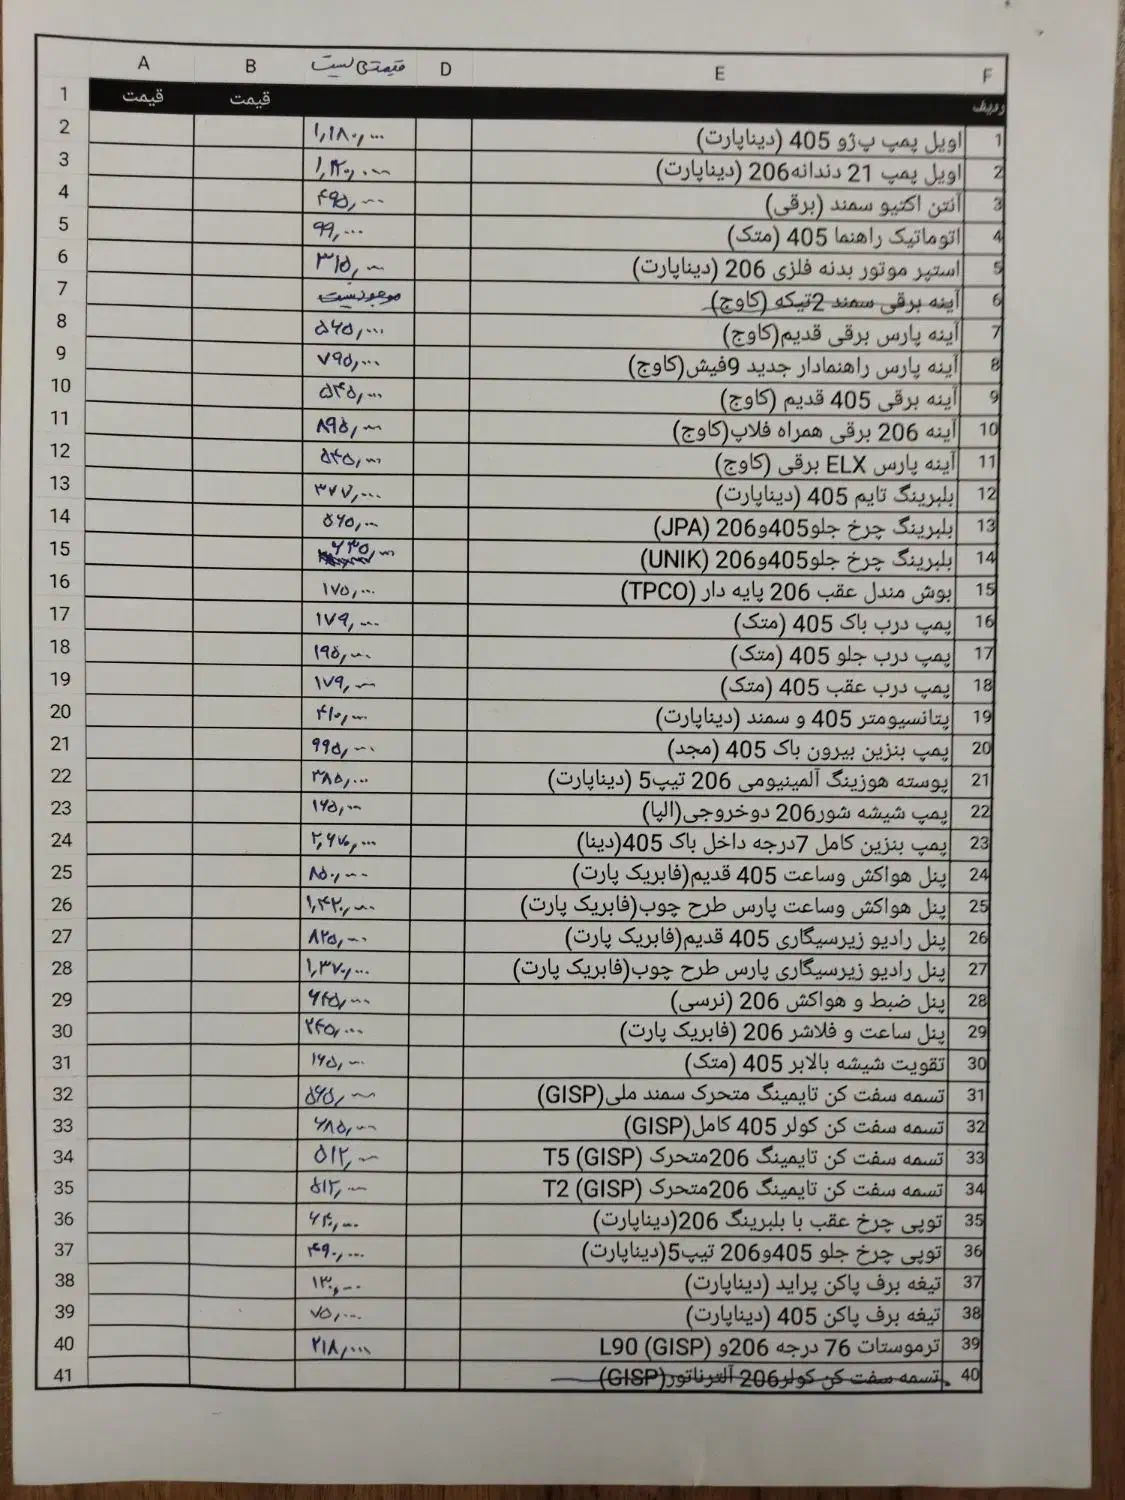 A B قیمت لیست D E F
1 قیمت قیمت ردیف
2 ۱,۱۸۰,۰۰۰ اویل پمپ پژو 405 (دیناپارت) 1
3 اویل پمپ 21 دندانه206 (دیناپارت) 2
4 ۴۹۵,۰۰۰ آنتن اکتیو سمند (برقی) 3
5 ۹۹,۰۰۰ اتوماتیک راهنما 405 (متک) 4
6 ۳۱۵,۰۰۰ استپر موتور بدنه فلزی 206 (دیناپارت) 5
7 موجود نیست آینه برقی سمند 2تیکه (کاوج) 6
8 ۵۶۵,۰۰۰ آینه پارس برقی قدیم(کاوج) 7
9 ۷۹۵,۰۰۰ آینه پارس راهنمادار جدید 9فیش(کاوج) 8
10 ۵۴۵,۰۰۰ آینه برقی 405 قدیم (کاوج) 9
11 ۸۹۵,۰۰۰ آینه 206 برقی همراه فلاپ(کاوج) 10
12 ۵۴۵,۰۰۰ آینه پارس ELX برقی (کاوج) 11
13 ۳۷۷,۰۰۰ بلبرینگ تایم 405 (دیناپارت) 12
14 ۵۶۰,۰۰۰ بلبرینگ چرخ جلو405و206 (JPA) 13
15 ۶۳۵,۰۰۰ بلبرینگ چرخ جلو405و206 (UNIK) 14
16 ۱۷۵,۰۰۰ بوش مندل عقب 206 پایه دار (TPCO) 15
17 ۱۷۹,۰۰۰ پمپ درب باک 405 (متک) 16
18 ۱۹۵,۰۰۰ پمپ درب جلو 405 (متک) 17
19 ۱۷۹,۰۰۰ پمپ درب عقب 405 (متک) 18
20 ۴۱۰,۰۰۰ پتانسیومتر 405 و سمند (دیناپارت) 19
21 ۹۹۵,۰۰۰ پمپ بنزین بیرون باک 405 (مجد) 20
22 ۳۸۵,۰۰۰ پوسته هوزینگ آلمینیومی 206 تیپ5 (دیناپارت) 21
23 ۱۶۵,۰۰۰ پمپ شیشه شور206 دوخروجی(الپا) 22
24 ۲,۶۷۰,۰۰۰ پمپ بنزین کامل 7درجه داخل باک 405(دینا) 23
25 ۸۵۰,۰۰۰ پنل هواکش وساعت 405 قدیم(فابریک پارت) 24
26 ۱,۴۲۰,۰۰۰ پنل هواکش وساعت پارس طرح چوب(فابریک پارت) 25
27 ۸۲۵,۰۰۰ پنل رادیو زیرسیگاری 405 قدیم(فابریک پارت) 26
28 ۱,۳۷۰,۰۰۰ پنل رادیو زیرسیگاری پارس طرح چوب(فابریک پارت) 27
29 ۶۴۵,۰۰۰ پنل ضبط و هواکش 206 (نرسی) 28
30 ۲۴۵,۰۰۰ پنل ساعت و فلاشر 206 (فابریک پارت) 29
31 ۱۶۵,۰۰۰ تقویت شیشه بالابر 405 (متک) 30
32 ۵۶۵,۰۰۰ تسمه سفت کن تایمینگ متحرک سمند ملی(GISP) 31
33 ۶۸۵,۰۰۰ تسمه سفت کن کولر 405 کامل(GISP) 32
34 ۵۱۲,۰۰۰ تسمه سفت کن تایمینگ 206متحرک T5 (GISP) 33
35 ۵۱۲,۰۰۰ تسمه سفت کن تایمینگ 206متحرک T2 (GISP) 34
36 توپی چرخ عقب با بلبرینگ 206(دیناپارت) 35
37 ۴۹۰,۰۰۰ توپی چرخ جلو 405و206 تیپ5(دیناپارت) 36
38 ۱۳۰,۰۰۰ تیغه برف پاکن پراید (دیناپارت) 37
39 ۷۵,۰۰۰ تیغه برف پاکن 405 (دیناپارت) 38
40 ۲۱۸,۰۰۰ ترموستات 76 درجه 206و L90 (GISP) 39
41 تسمه سفت کن کولر206 آلترناتور(GISP) 40